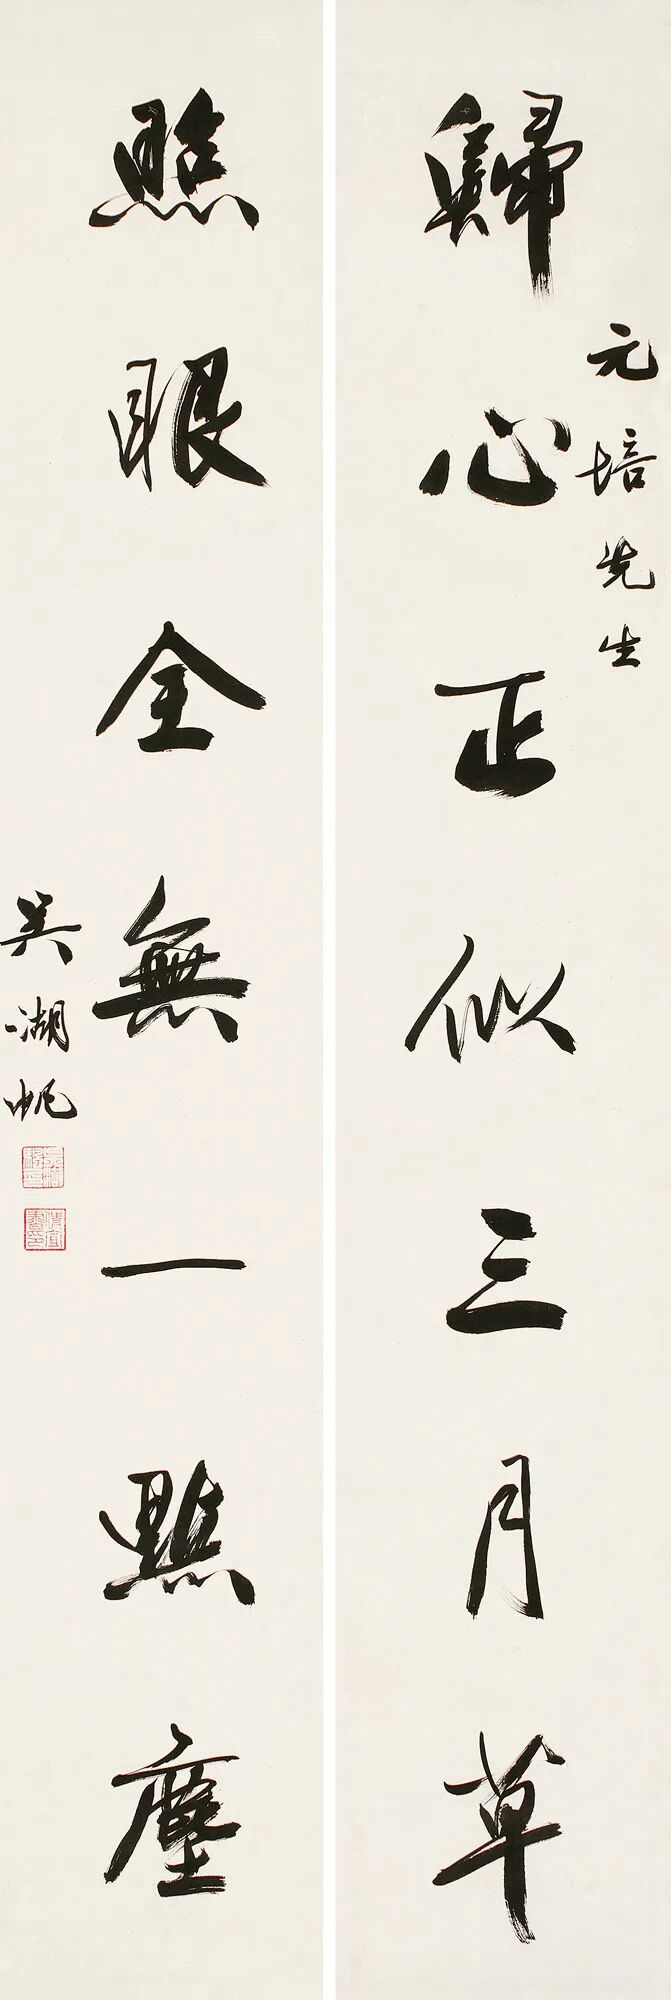 歸心正似三月草
元培先生
照眼全無一點塵
吳湖帆